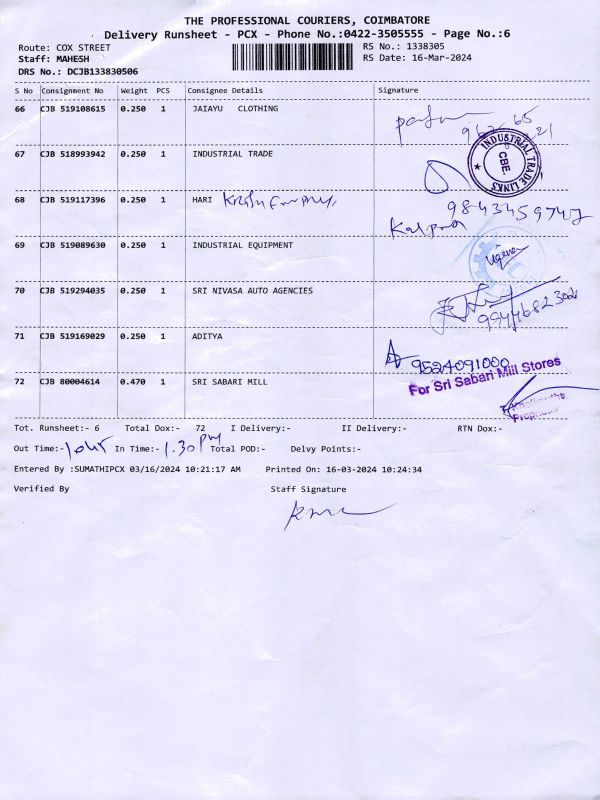 THE PROFESSIONAL COURIERS, COIMBATORE
Delivery Runsheet - PCX - Phone No.:0422-3505555 - Page No.:6
Route: COX STREET RS No.: 1338305
Staff: MAHESH RS Date: 16-Mar-2024
DRS No.: DCJB133830506
S No Consignment No Weight PCS Consignee Details Signature
66 CJB 519108615 0.250 1 JAIAYU CLOTHING
67 CJB 518993942 0.250 1 INDUSTRIAL TRADE
INDUSTRIAL TRADE LINKS
CBE
68 CJB 519117396 0.250 1 HARI 9843459747
Kalpna
69 CJB 519089630 0.250 1 INDUSTRIAL EQUIPMENT
70 CJB 519294035 0.250 1 SRI NIVASA AUTO AGENCIES
71 CJB 519169029 0.250 1 ADITYA
9524091000
For Sri Sabari Mill Stores
72 CJB 80004614 0.470 1 SRI SABARI MILL
Tot. Runsheet:- 6 Total Dox:- 72 I Delivery:- II Delivery:- RTN Dox:-
Out Time:- In Time:- 1.30 PM Total POD:- Delvy Points:-
Entered By :SUMATHIPCX 03/16/2024 10:21:17 AM Printed On: 16-03-2024 10:24:34
Verified By Staff Signature